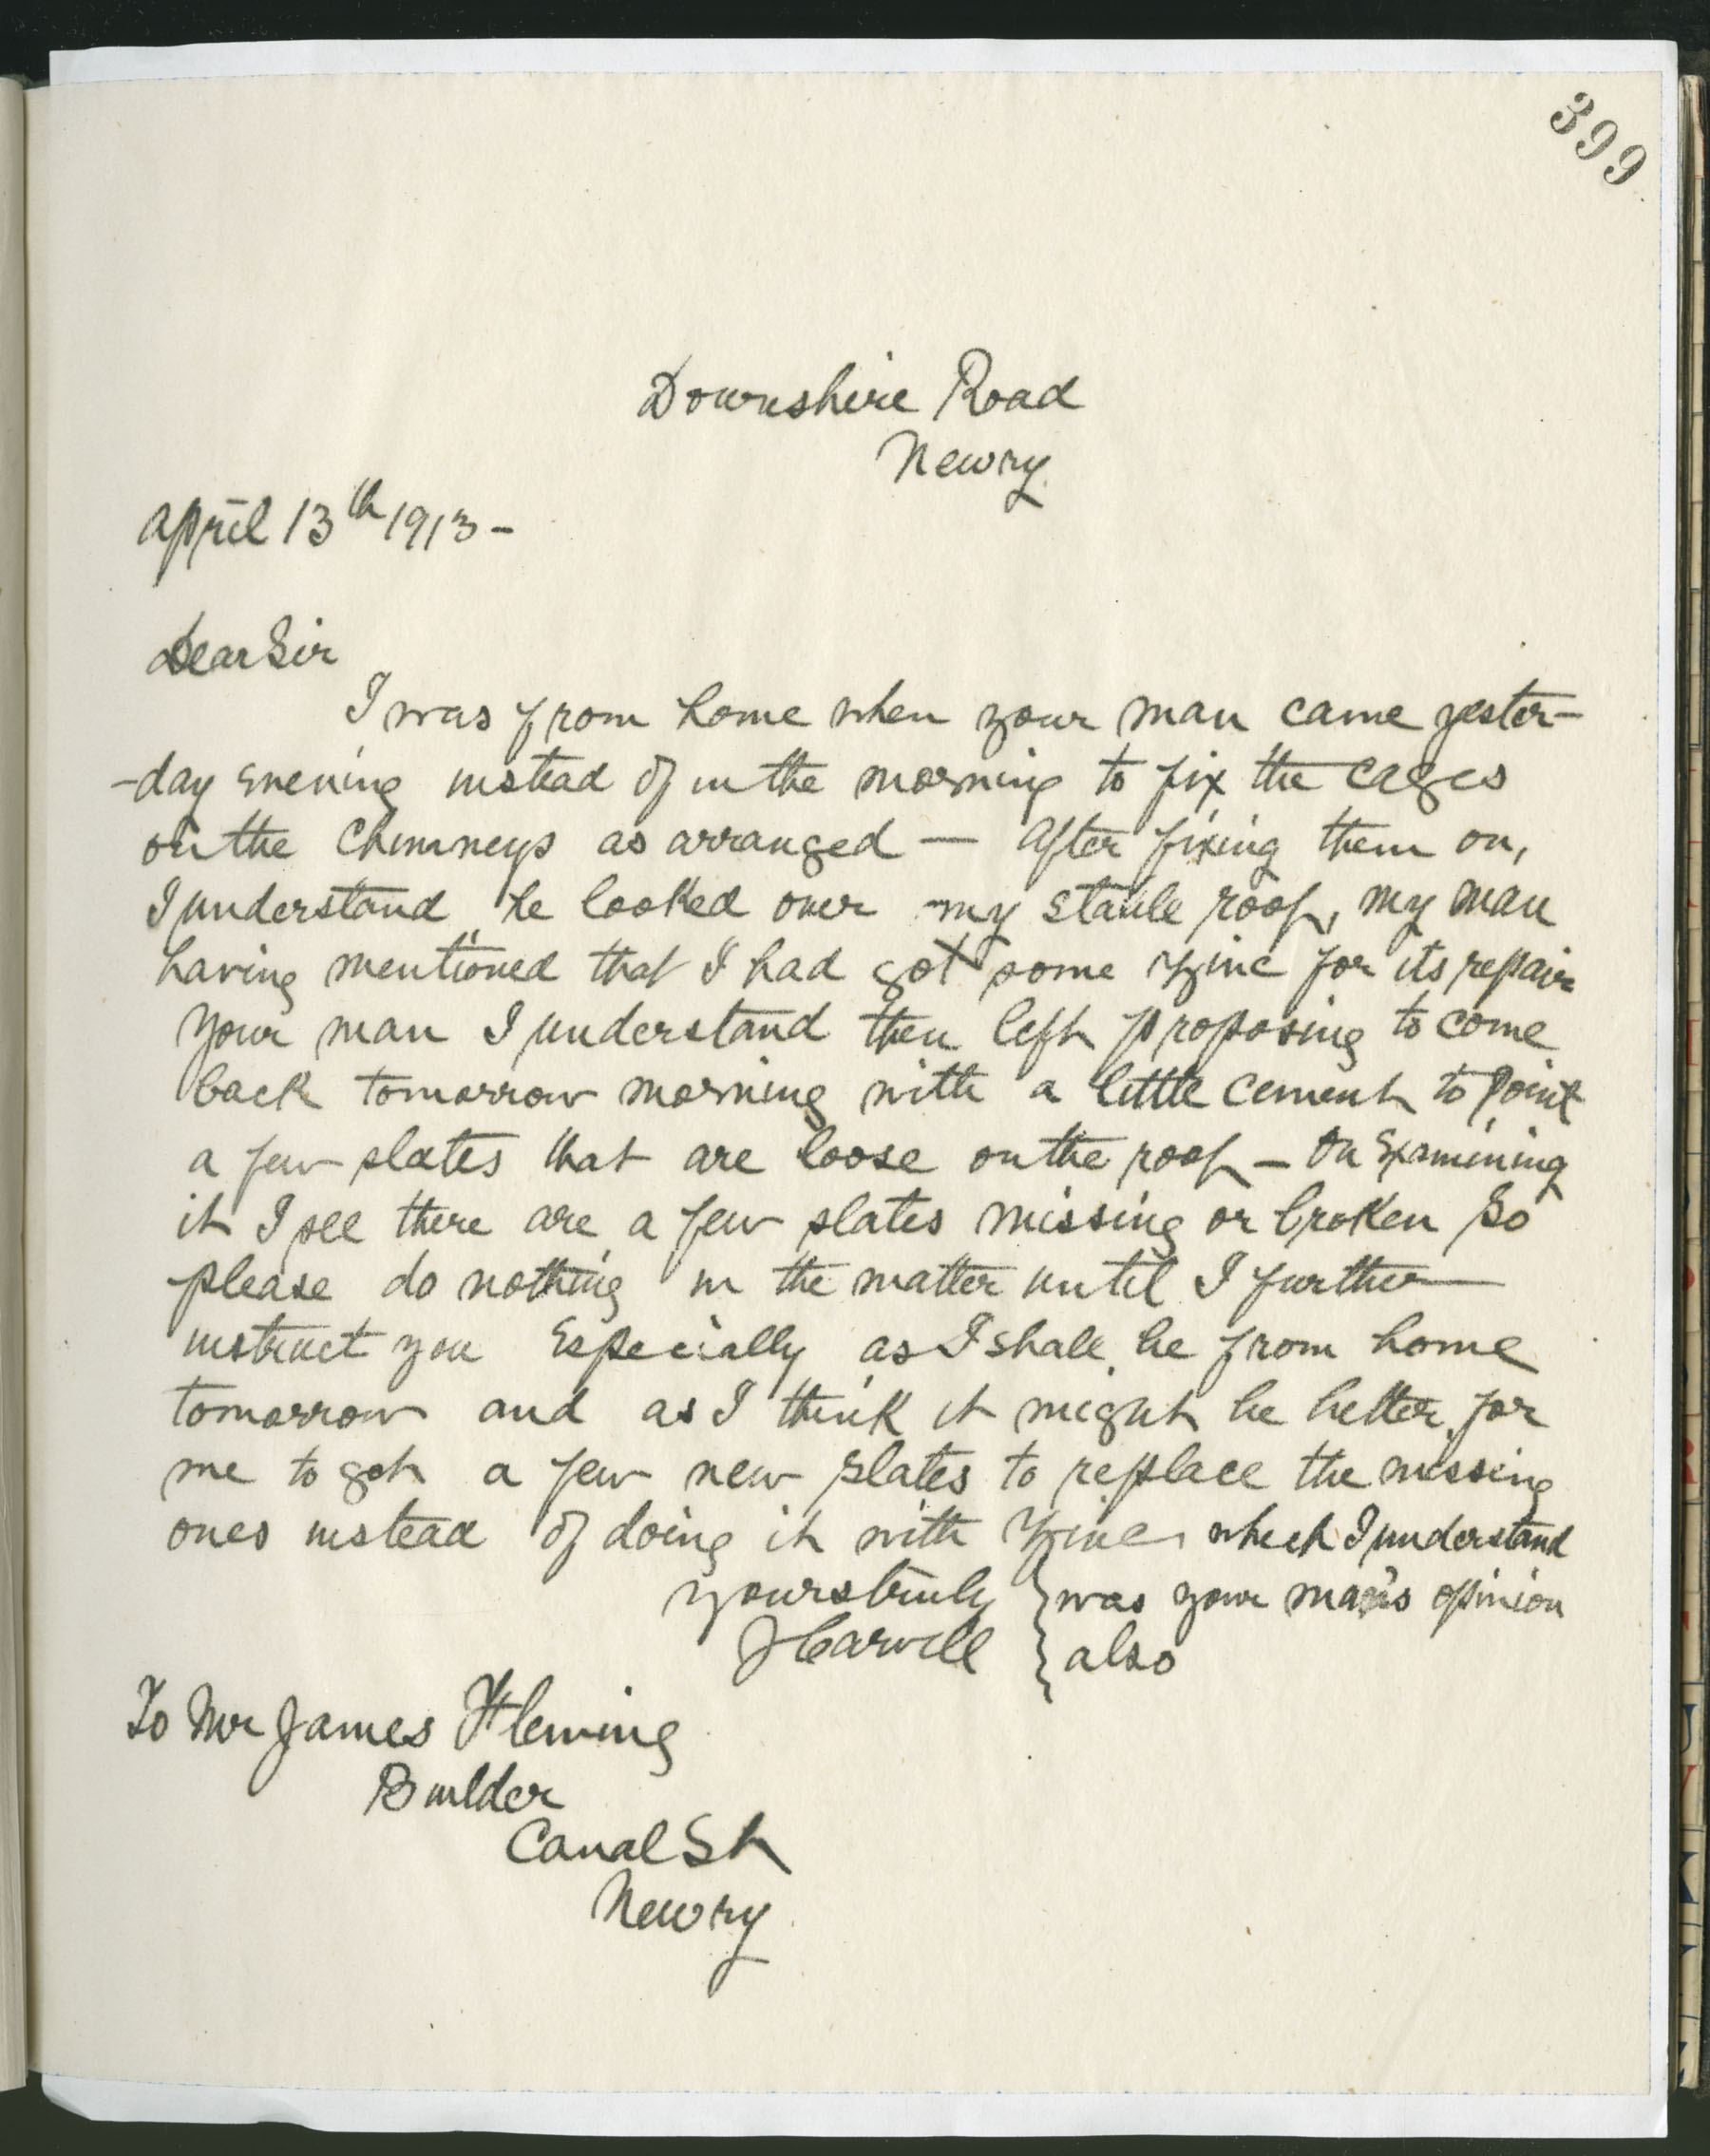 399
Downshire Road
Newry
April 13th 1913 -
Dear Sir
I was from home when your man came yester-
-day evening instead of in the morning to fix the cages
on the chimneys as arranged — After fixing them on,
I understand, he looked over my stable roof, my man
having mentioned that I had got some zinc for its repair
Your man I understand then left proposing to come
back tomorrow morning with a little cement to point
a few slates that are loose on the roof - On Examining
it I see there are a few slates missing or broken So
please do nothing in the matter until I further
instruct you Especially as I shall be from home
tomorrow and as I think it might be better for
me to get a few new slates to replace the missing
ones instead of doing it with Zinc which I understand
yours truly } was your man's opinion
JCarvill } also
To Mr James Fleming
Builder
Canal St
Newry